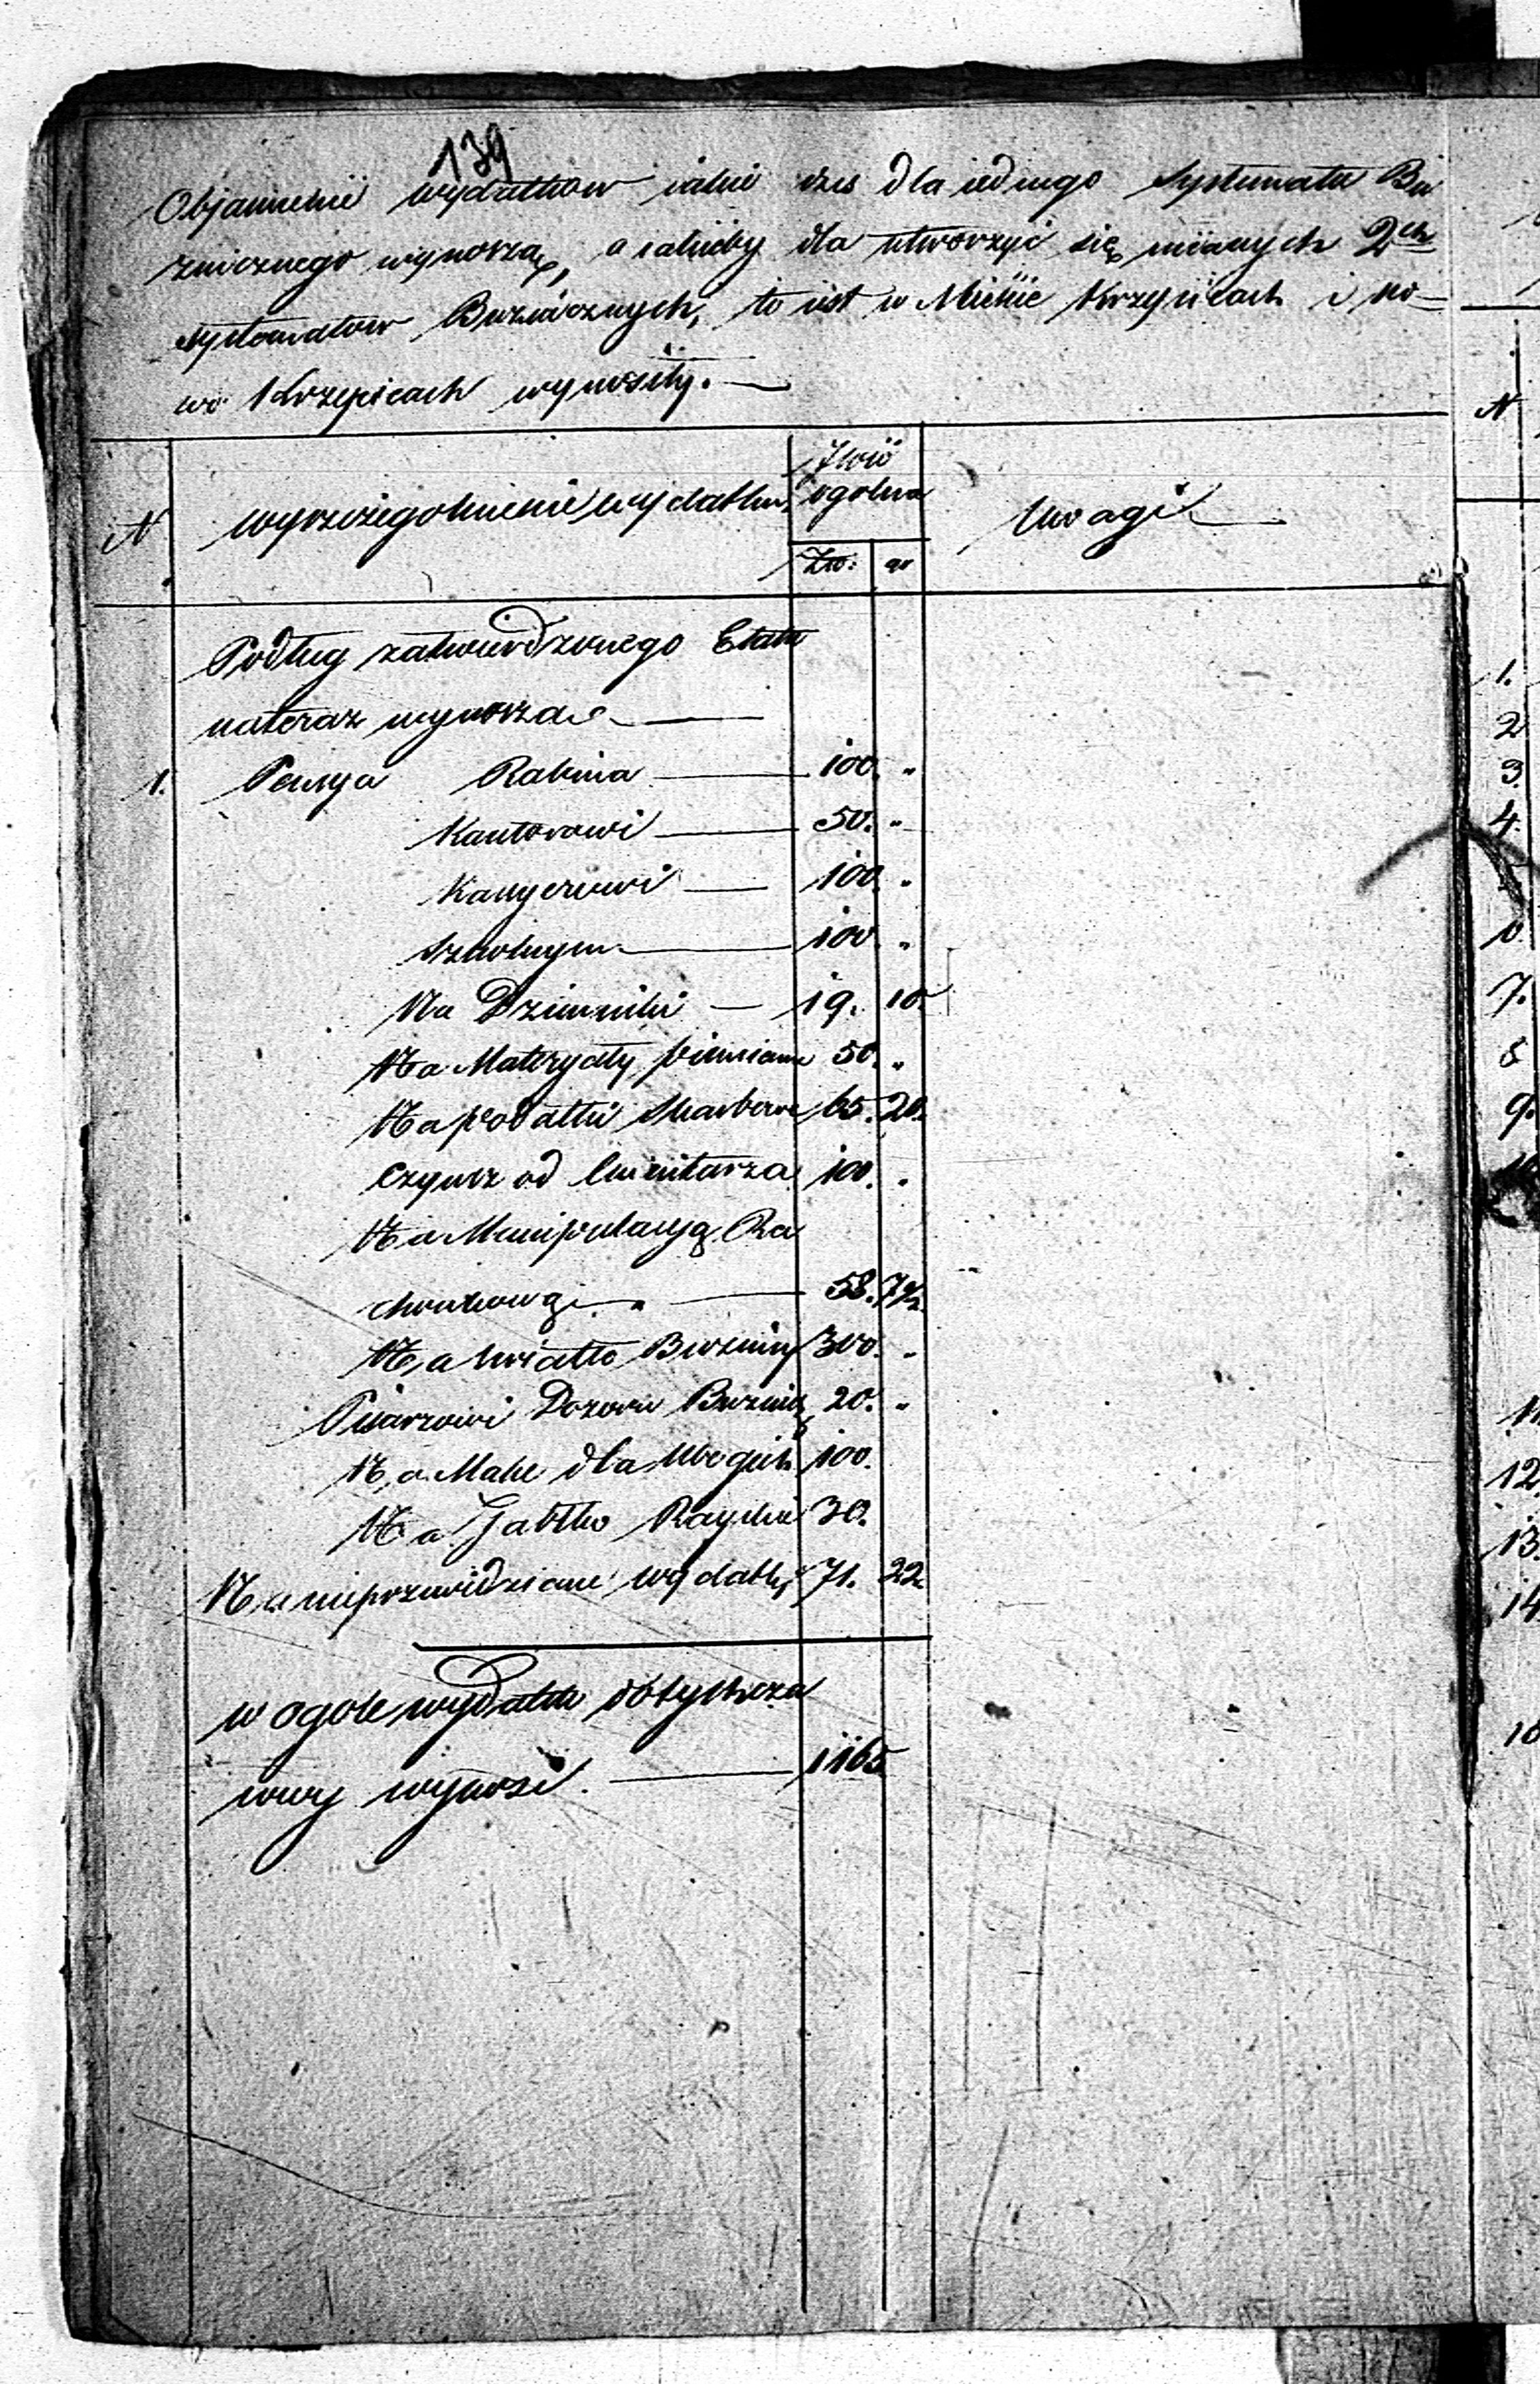 139
Objasnienie wydatków iakie dziś dla iednego Systematu Bu
zniczego wynoszą, a iakieby dla utworzyć się mianych 2ch
systematów Buznicznych, to iest w Mieście Krzepicach i No-
wo Krzepicach wynosiły. —
N wyszczegolnienie wydatku Ilość ogolna Uwagi
Zło: gr
Podług zatwierdzonego Etatu
nateraz wynosza —
1. Pensya Rabina — 100. "
Kantorowi — 50. "
Kassyerowi — 100. "
Szkolnym — 100 "
Na Dzienniki — 19. 10
Na Materyały pismiane 50. "
Na podatki skarbowe 65. 20.
Czynsz od Cmentarza 100. "
Na Manipulacyą Ra
chunkową — 58. 7½
Na swiatło Buznicy 300. "
Pisarzowi Dozoru Buznic 20. "
Na Mace dla Ubogich 100.
Na Jabłko Rayskie 30.
Na nieprzewidziane wydatki 71. 22
w ogole wydatek dotychcza
sowy wynosi. — 1165
N
1.
2
3.
4.
7.
8
9.
11
12.
13
14